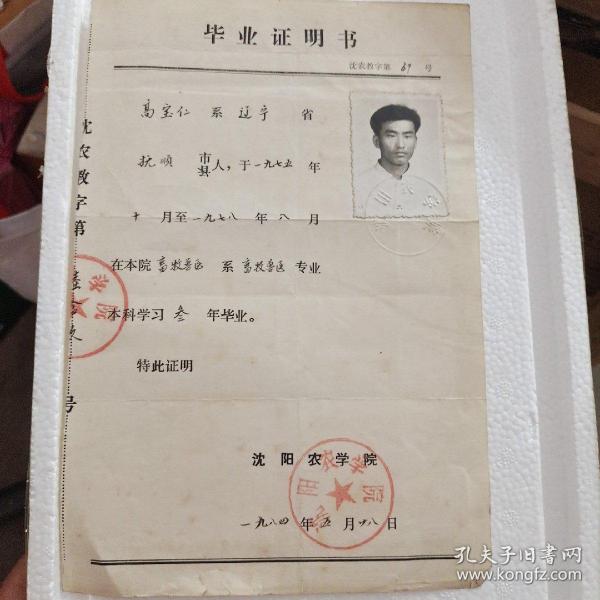 毕业证明书
沈农教字第 69 号
高宝仁 系 辽宁 省
抚顺 市县人，于一九七五 年
十 月至一九七八 年 八 月
在本院 畜牧兽医 系 畜牧兽医 专业
本科学习 叁 年毕业。
特此证明
沈阳农学院
一九八四 年 五 月 廿八 日
沈农教字第
号
孔夫子旧书网
www.kongfz.com